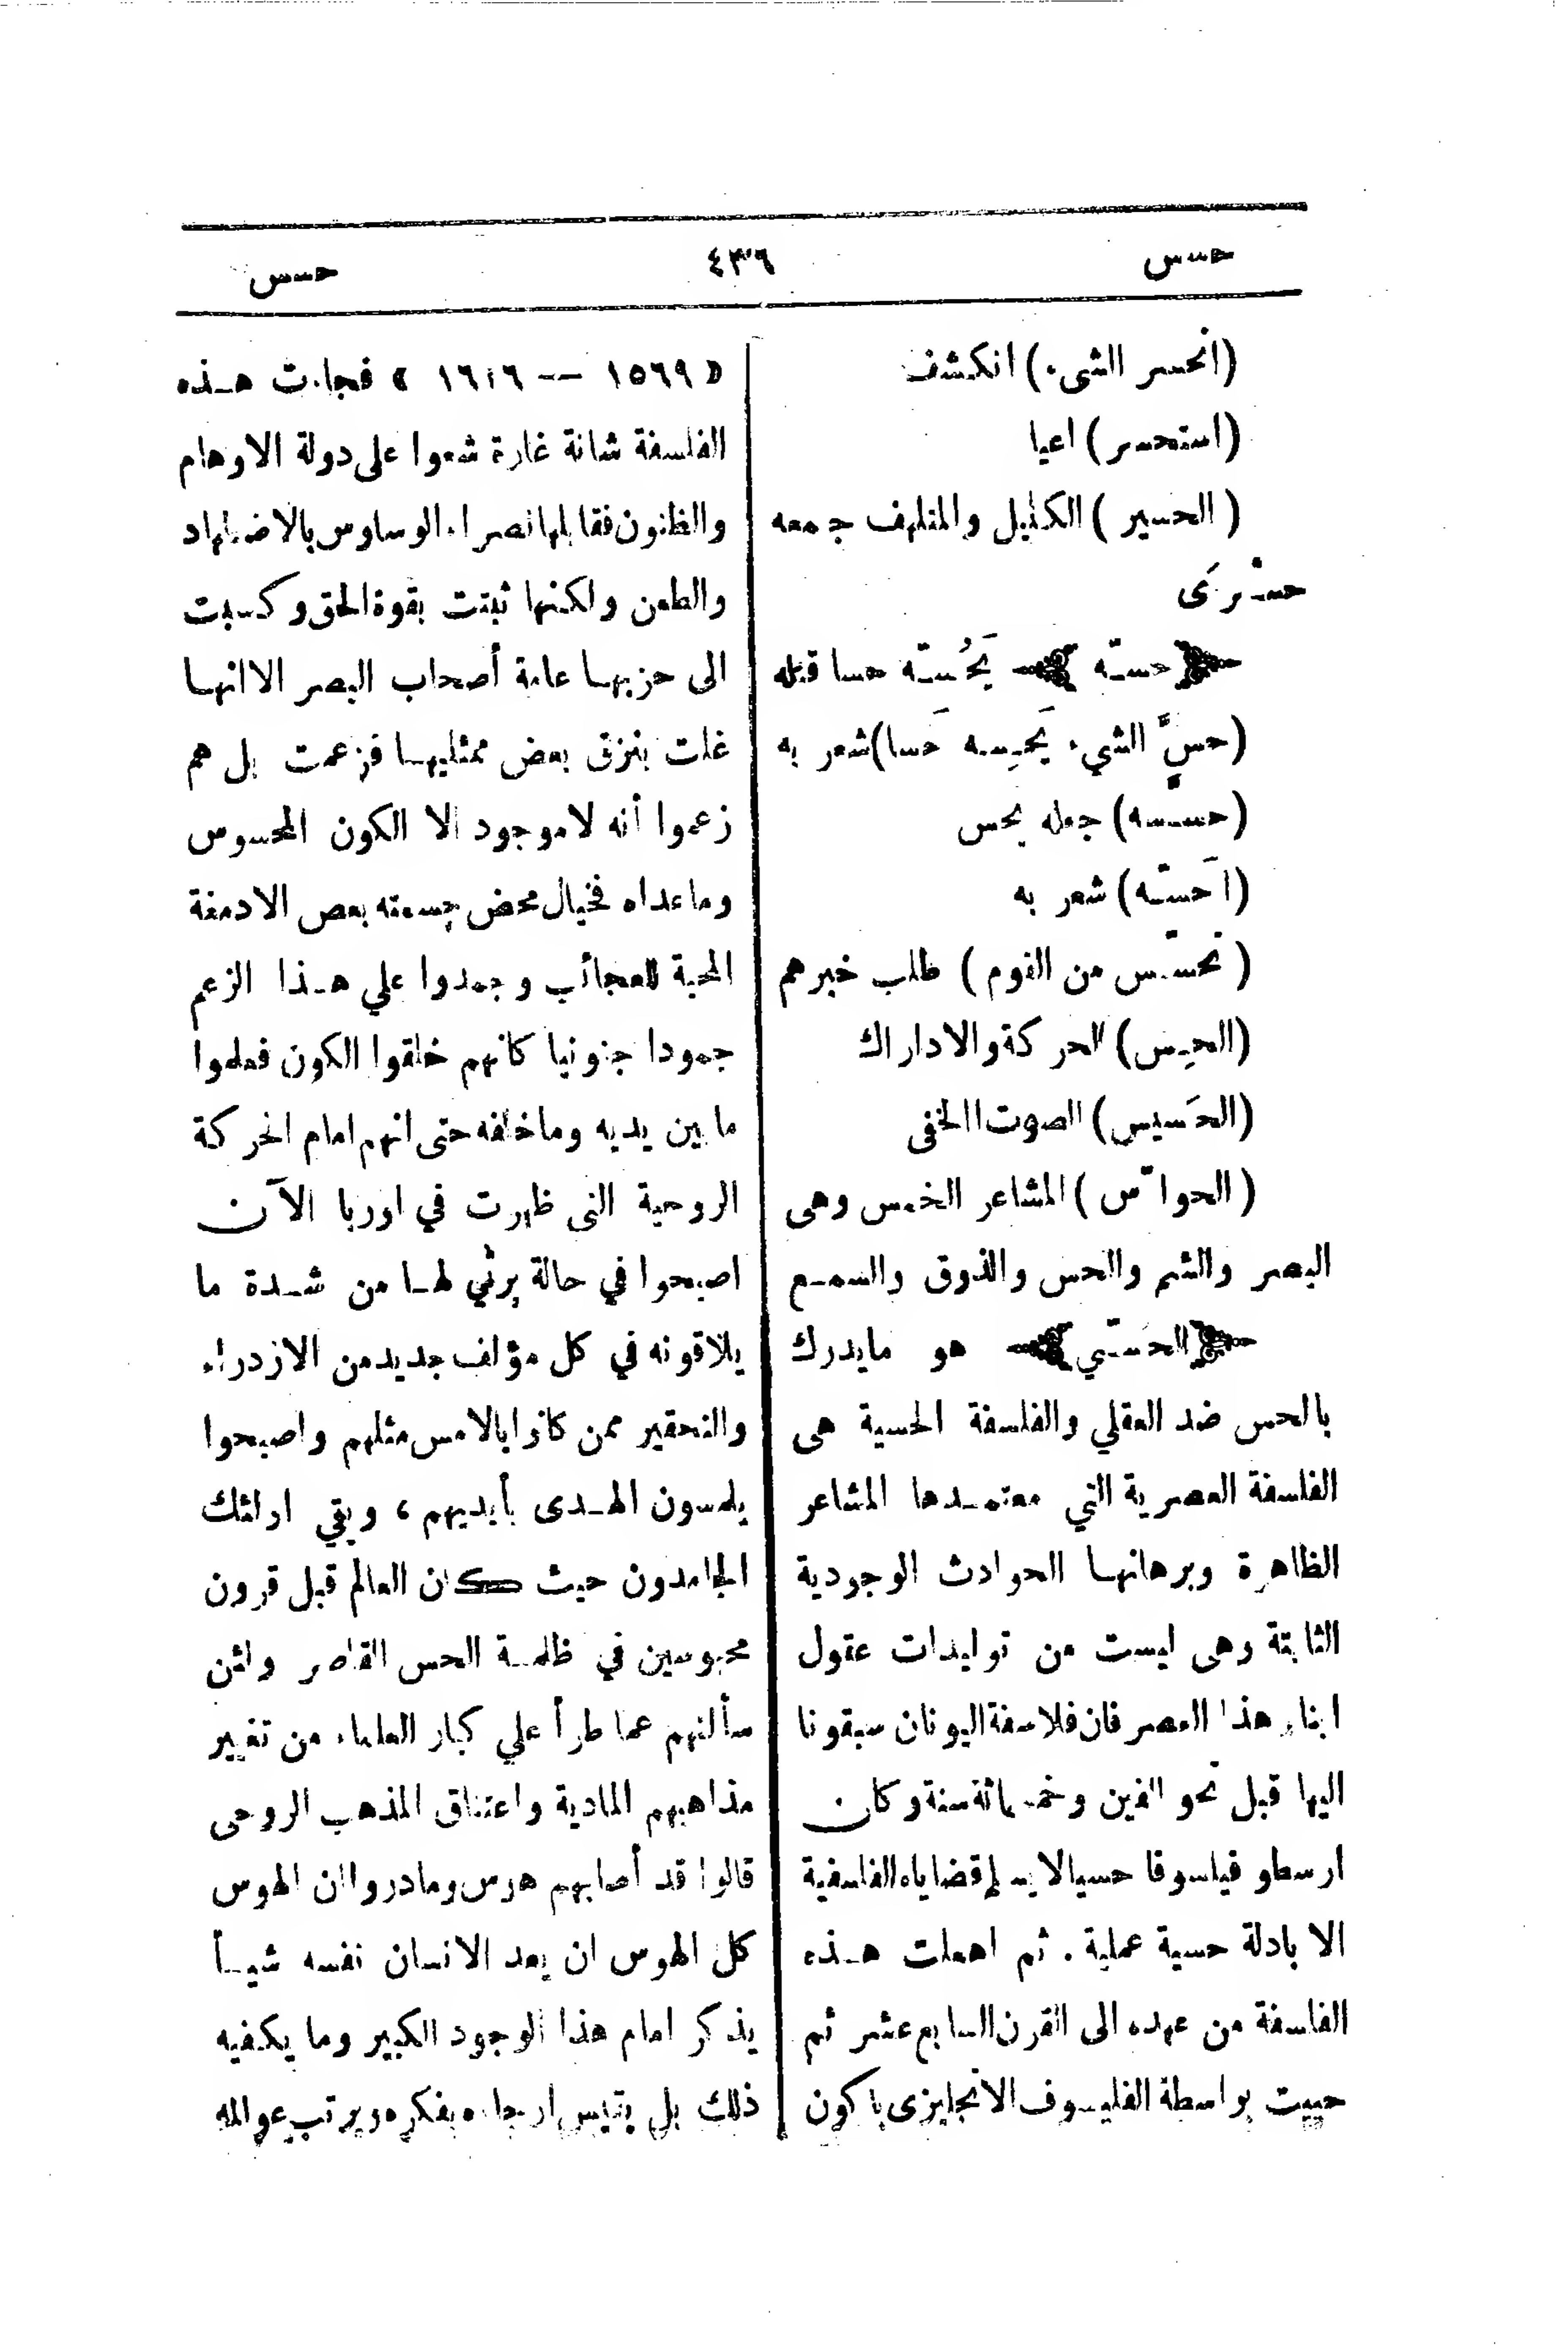 حسس ٤٣٦ حسس
(انحسر الشىء) انكشف
(استحسر) اعيا
(الحسير) الكليل والمتلهف جمعه
حسْرَى
حسّه يَحُسّه حسا قتله
(حسَّ الشيء يَحِسه حَسا) شعر به
(حسسه) جعله يحس
(اَحسّه) شعر به
(تحسّس من القوم) طلب خبرهم
(الحِس) الحركة والاداراك
(الحَسيس) الصوت الخفى
(الحواسّ) المشاعر الخمس وهى
البصر والشم والحس والذوق والسمع
الحسّي هو مايدرك
بالحس ضد العقلي والفلسفة الحسية هى
الفلسفة العصرية التي معتمدها المشاعر
الظاهرة وبرهانها الحوادث الوجودية
الثابتة وهى ليست من توليدات عقول
ابناء هذا العصر فان فلاسفة اليونان سبقونا
اليها قبل نحو الفين وخمسمائة سنة وكان
ارسطو فيلسوفا حسيا لا يسلم قضاياه الفلسفية
الا بادلة حسية عملية. ثم اهملت هذه
الفلسفة من عهده الى القرن السابع عشر ثم
حييت بواسطة الفليسوف الانجليزى باكون
« ١٥٦٩ -- ١٦١٦ » فجاءت هذه
الفلسفة شانة غارة شعوا على دولة الاوهام
والظنون فقابلها نصراء الوساوس بالاضطهاد
والطعن ولكنها ثبتت بقوة الحق وكسبت
الى حزبها عامة أصحاب البصر الا انها
غلت بنزق بعض ممثليها فزعمت بل هم
زعموا أنه لا موجود الا الكون المحسوس
وما عداه فخيال محض جسمته بعض الادمغة
المحبة للعجائب وجمدوا علي هذا الزعم
جمودا جنونيا كانهم خلقوا الكون فعلموا
ما بين يديه وما خلفه حتى انهم امام الحركة
الروحية التى ظهرت في اوربا الآن
اصبحوا في حالة يرثي لها من شدة ما
يلاقونه في كل مؤلف جديد من الازدراء
والتحقير ممن كانوا بالامس مثلهم واصبحوا
يلمسون الهدى بأيديهم، وبقي اولئك
الجامدون حيث كان العالم قبل قرون
محبوسين في ظلمة الحس القاصر ولئن
سألتهم عما طرأ علي كبار العلماء من تغيير
مذاهبهم المادية واعتناق المذهب الروحى
قالوا قد أصابهم هوس وما دروا ان الهوس
كل الهوس ان يعد الانسان نفسه شيأ
يذكر امام هذا الوجود الكبير وما يكفيه
ذلك بل يقيس ارجاءه بفكره ويرتب عوالمه